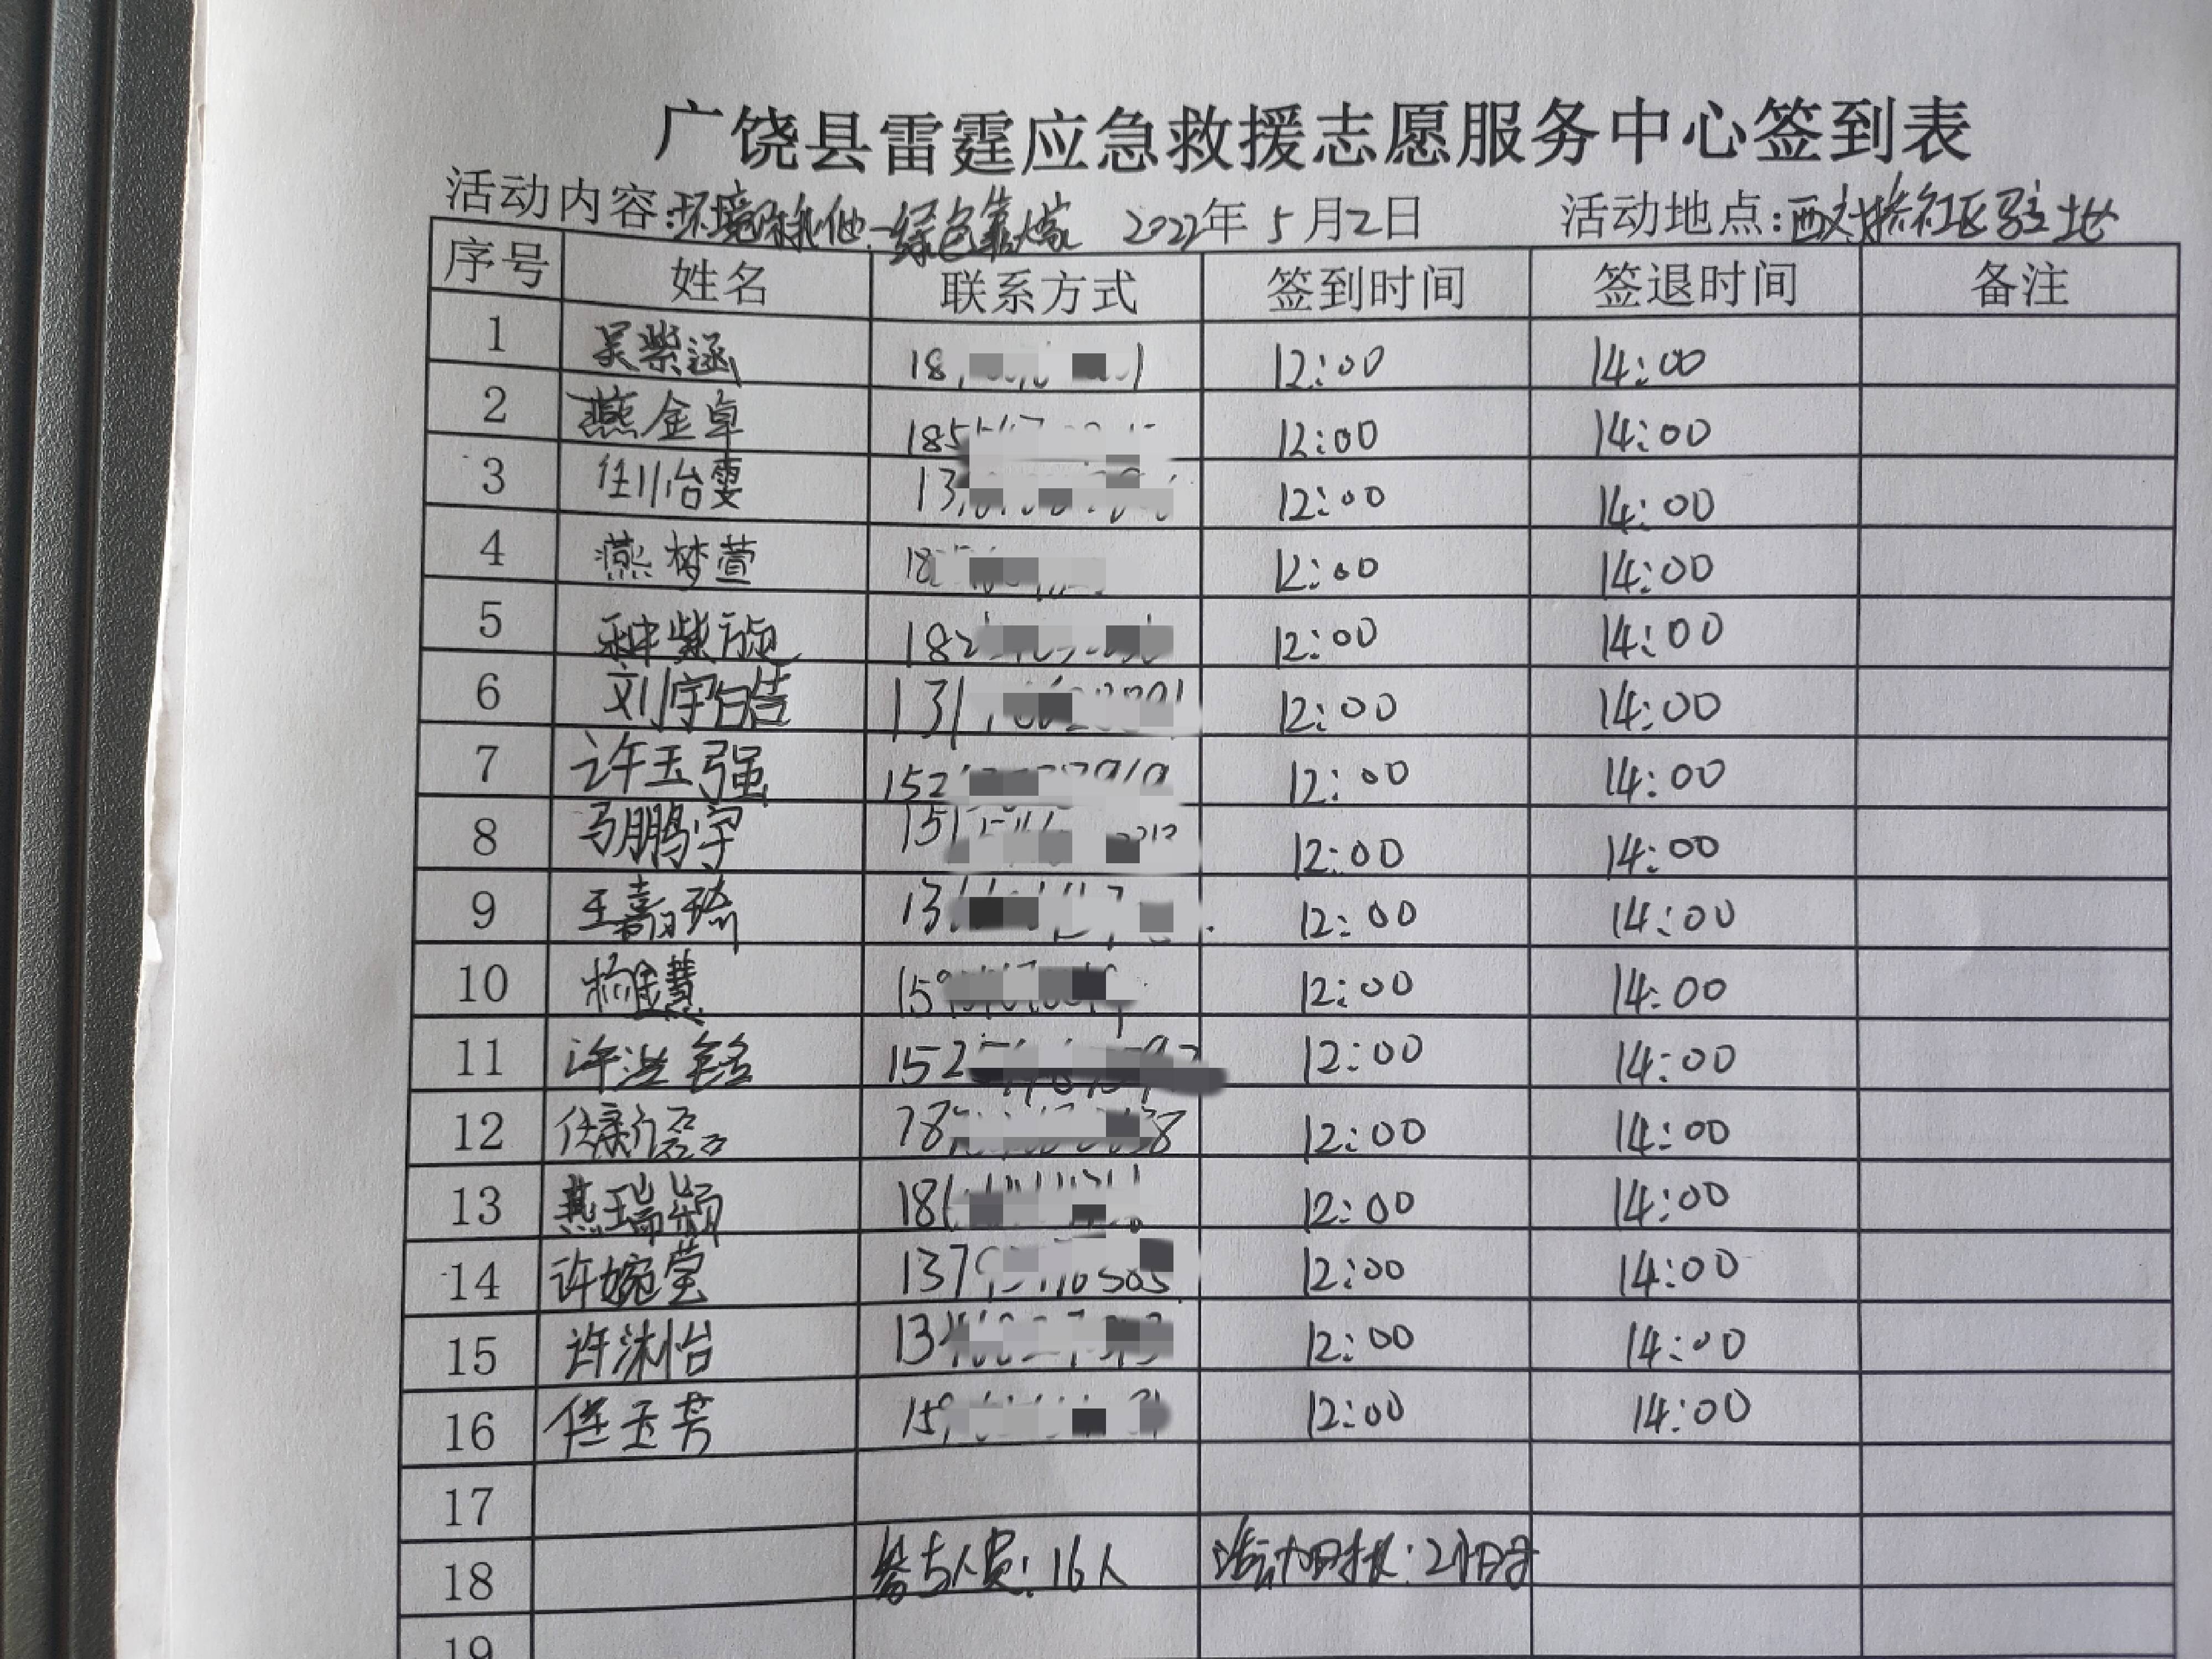 广饶县雷霆应急救援志愿服务中心签到表
活动内容：环境 你我他 绿色靠大家 2022年5月2日 活动地点：西 社区驻地
序号 姓名 联系方式 签到时间 签退时间 备注
1 吴紫涵 18 1 12:00 14:00
2 燕金卓 185 12:00 14:00
3 任怡雯 13 12:00 14:00
4 燕梦萱 18 12:00 14:00
5 种紫颖 182 12:00 14:00
6 刘宇皓 131 12:00 14:00
7 许玉强 152 12:00 14:00
8 马鹏宇 151 12:00 14:00
9 王嘉琦 13 12:00 14:00
10 杨金慧 159 12:00 14:00
11 许洪铭 152 12:00 14:00
12 任新磊 78 8 12:00 14:00
13 燕瑞颖 18 12:00 14:00
14 许婉莹 137 12:00 14:00
15 许沐怡 13 12:00 14:00
16 任玉芳 15 12:00 14:00
17
18 参与人员：16人 活动时长：2小时
19